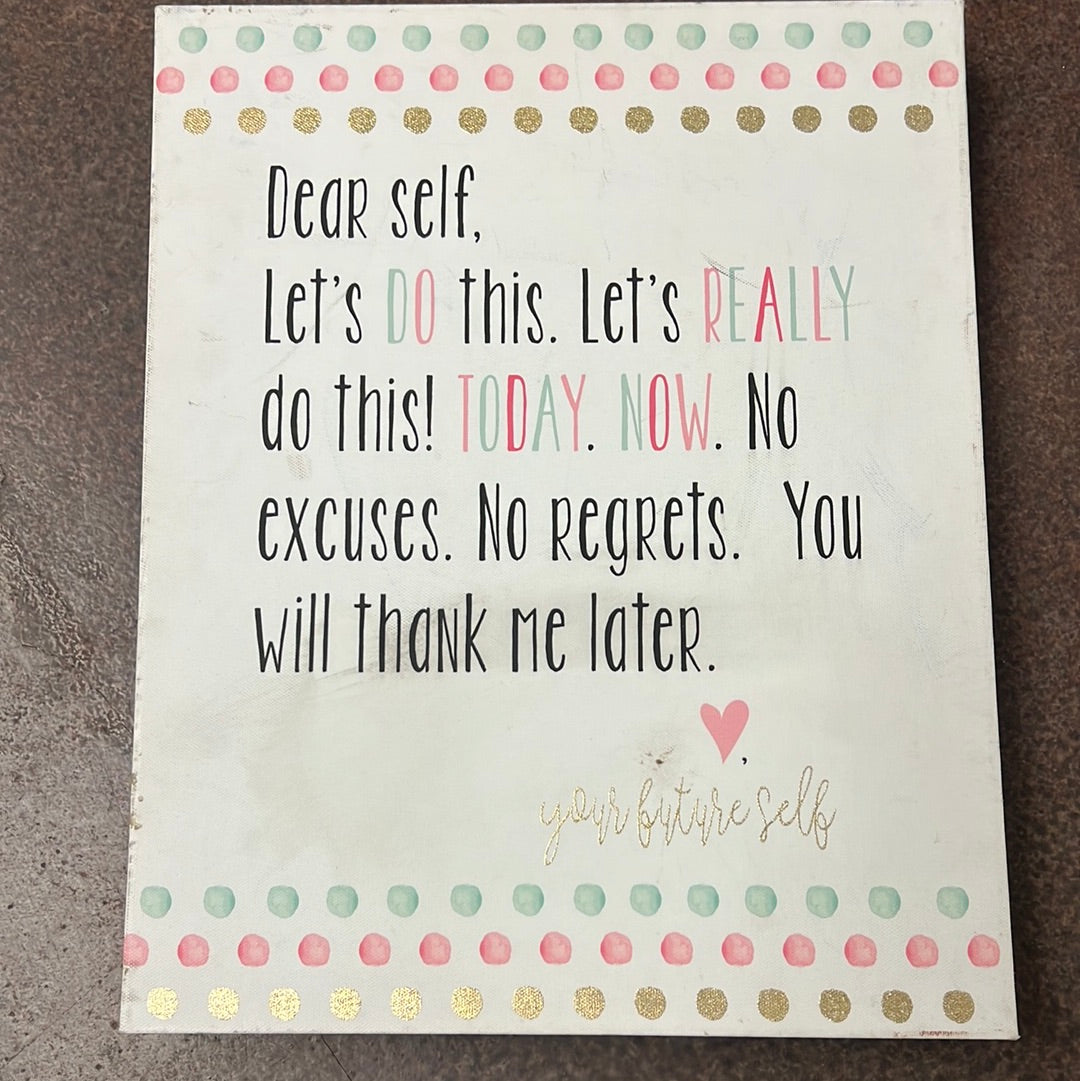 Dear self,
Let's DO this. Let's REALLY
do this! TODAY. NOW. No
excuses. No regrets. You
will thank me later.
♥,
your future self